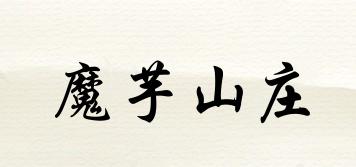 魔芋山庄